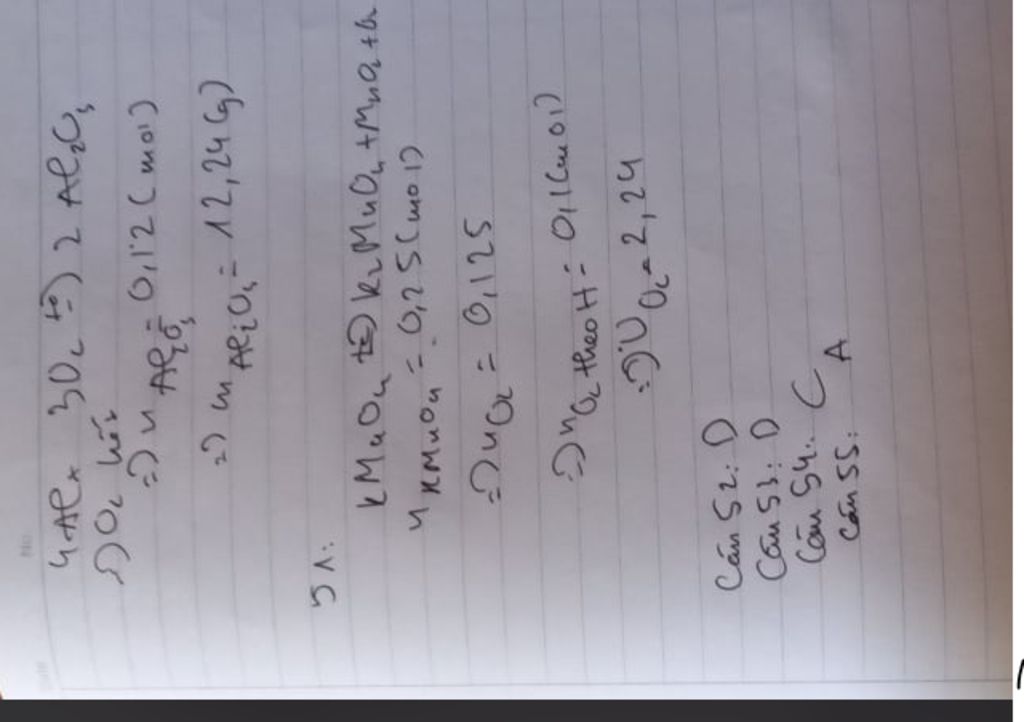 4Al + 3O₂ t°=> 2Al₂O₃
=> O₂ hết
=> n Al₂O₃ = 0,12 (mol)
=> m Al₂O₃ = 12,24 (g)
51:
KMnO₄ t°=> K₂MnO₄ + MnO₂ + O₂
n KMnO₄ = 0,25 (mol)
=> n O₂ = 0,125
=> n O₂ theo H = 0,1 (mol)
=> V O₂ = 2,24
Câu 52: D
Câu 53: D
Câu 54: C
Câu 55: A